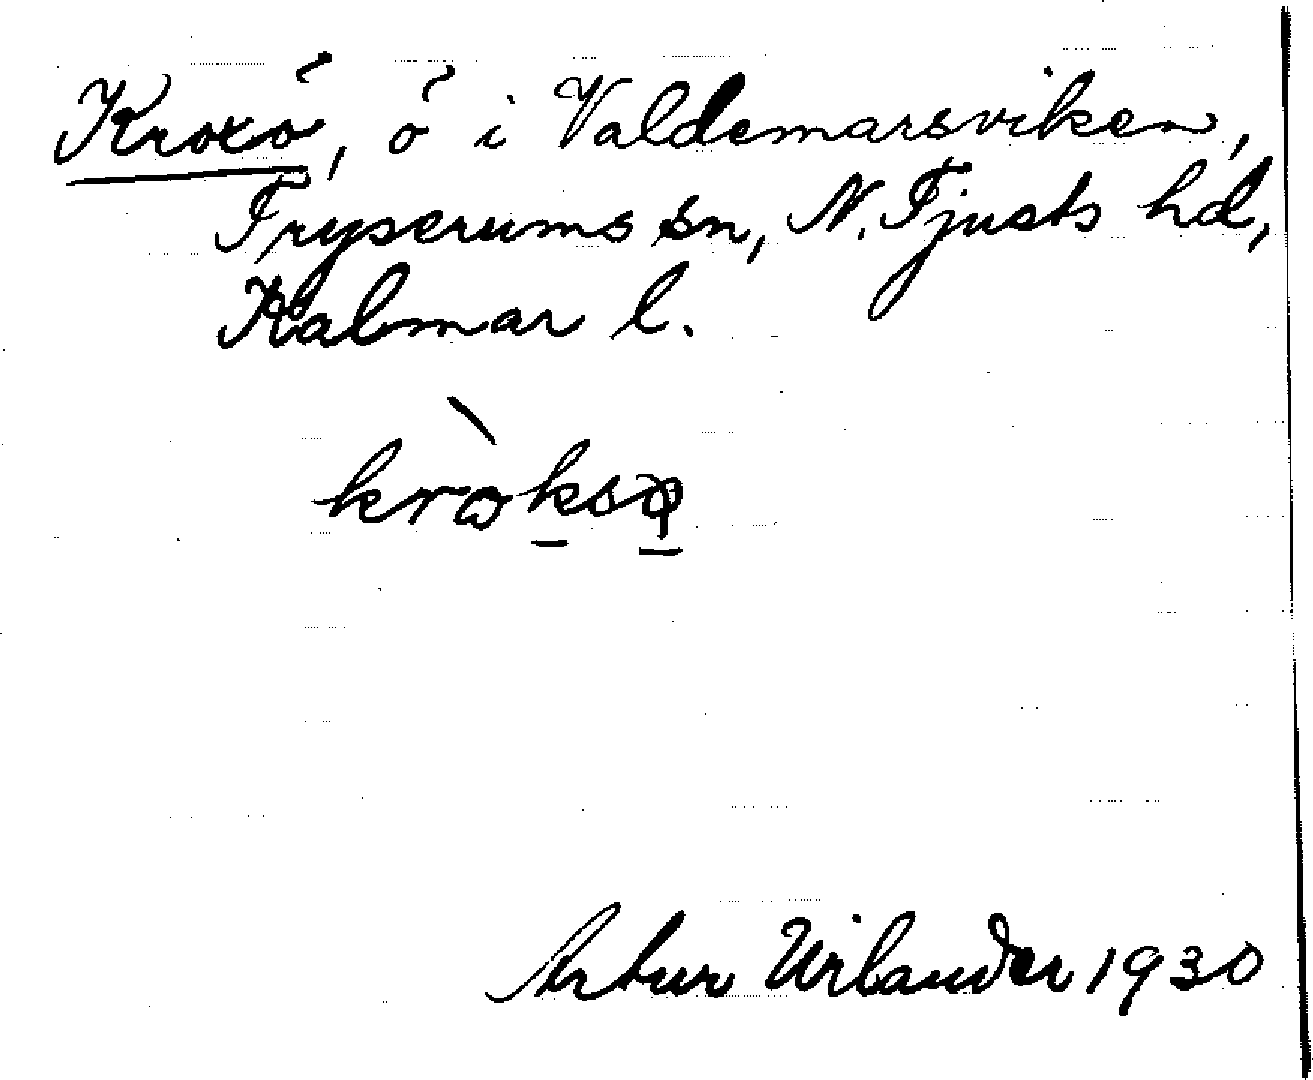 Kroxö, ö i Valdemarsviken,
Tryserums sn, N. Tjusts hd,
Kalmar l.
kròksø
Artur Wilander 1930